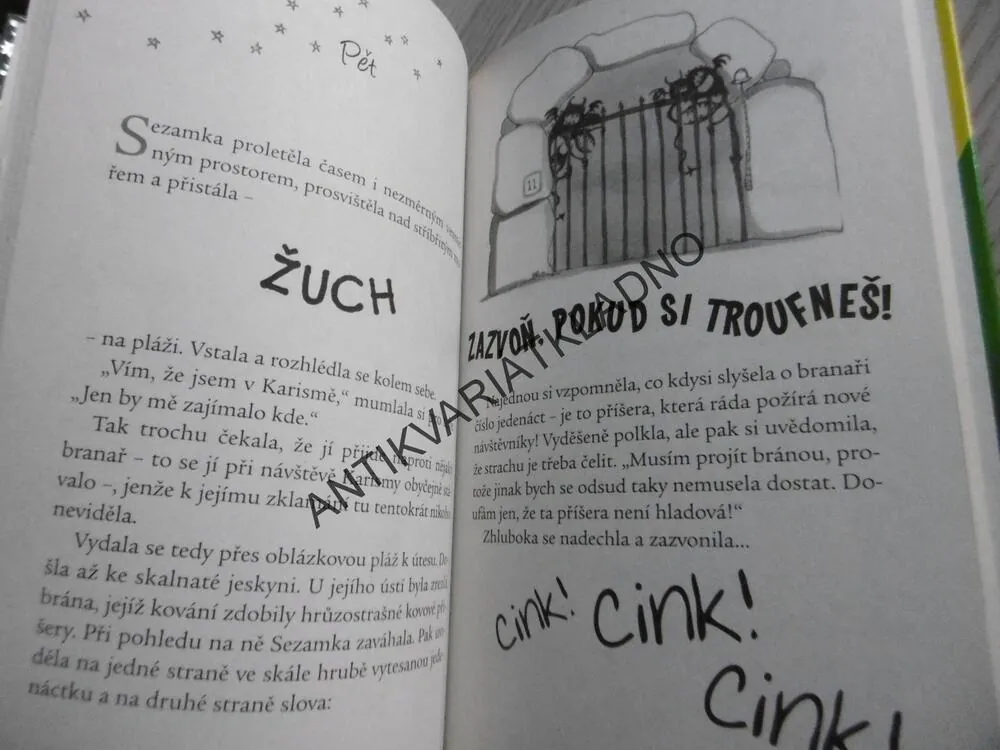 Pět
Sezamka proletěla časem i nezměrným
ným prostorem, prosvištěla nad stříbřitým
řem a přistála –
ŽUCH
– na pláži. Vstala a rozhlédla se kolem sebe.
„Vím, že jsem v Karismě,“ mumlala si pro
„Jen by mě zajímalo kde.“
Tak trochu čekala, že jí přijde naproti nějaký
branař – to se jí při návštěvě Karismy obyčejně stá-
valo –, jenže k jejímu zklamání tu tentokrát nikoho
neviděla.
Vydala se tedy přes oblázkovou pláž k útesu. Do-
šla až ke skalnaté jeskyni. U jejího ústí byla
brána, jejíž kování zdobily hrůzostrašné kovové pří-
šery. Při pohledu na ně Sezamka zaváhala. Pak uvi-
děla na jedné straně ve skále hrubě vytesanou jede-
náctku a na druhé straně slova:
11
ZAZVOŇ, POKUD SI TROUFNEŠ!
Najednou si vzpomněla, co kdysi slyšela o branaři
číslo jedenáct – je to příšera, která ráda požírá nové
návštěvníky! Vyděšeně polkla, ale pak si uvědomila,
že strachu je třeba čelit. „Musím projít bránou, pro-
tože jinak bych se odsud taky nemusela dostat. Do-
ufám jen, že ta příšera není hladová!“
Zhluboka se nadechla a zazvonila...
Cink!
Cink!
Cink!
ANTIKVARIATKLADNO